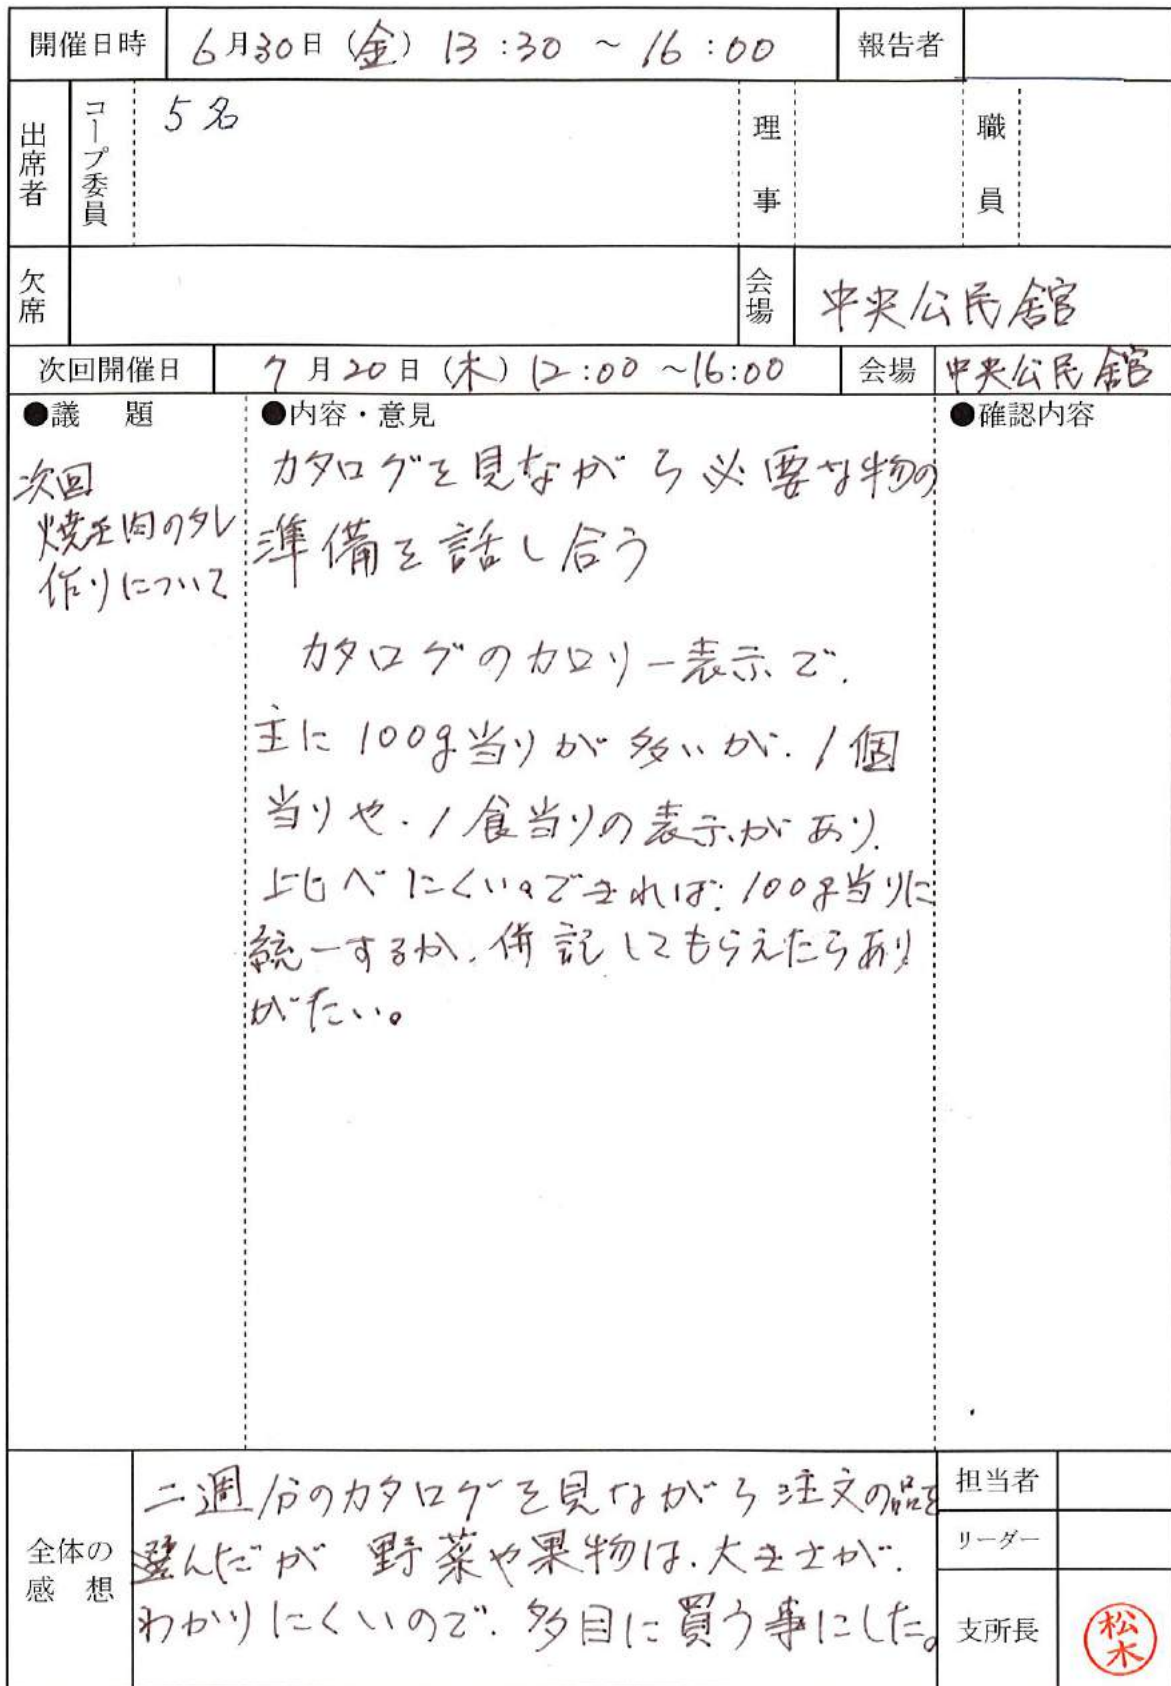 開催日時 6月30日(金) 13:30 ~ 16:00 報告者
出席者 コープ委員 5名 理事 職員
欠席 会場 中央公民館
次回開催日 7月20日(木) 12:00 ~16:00 会場 中央公民館
●議 題 ●内容・意見 ●確認内容
次回
焼き肉のタレ
作りについて
カタログを見ながら必要な物の
準備を話し合う
カタログのカロリー表示で、
主に100g当りが多いが、1個
当りや、1食当りの表示があり、
比べにくい。できれば、100g当りに
統一するか、併記してもらえたらあり
がたい。
全体の感想
二週分のカタログを見ながら注文の品を
選んだが 野菜や果物は、大きさが、
わかりにくいので、多目に買う事にした。
担当者
リーダー
支所長 松木